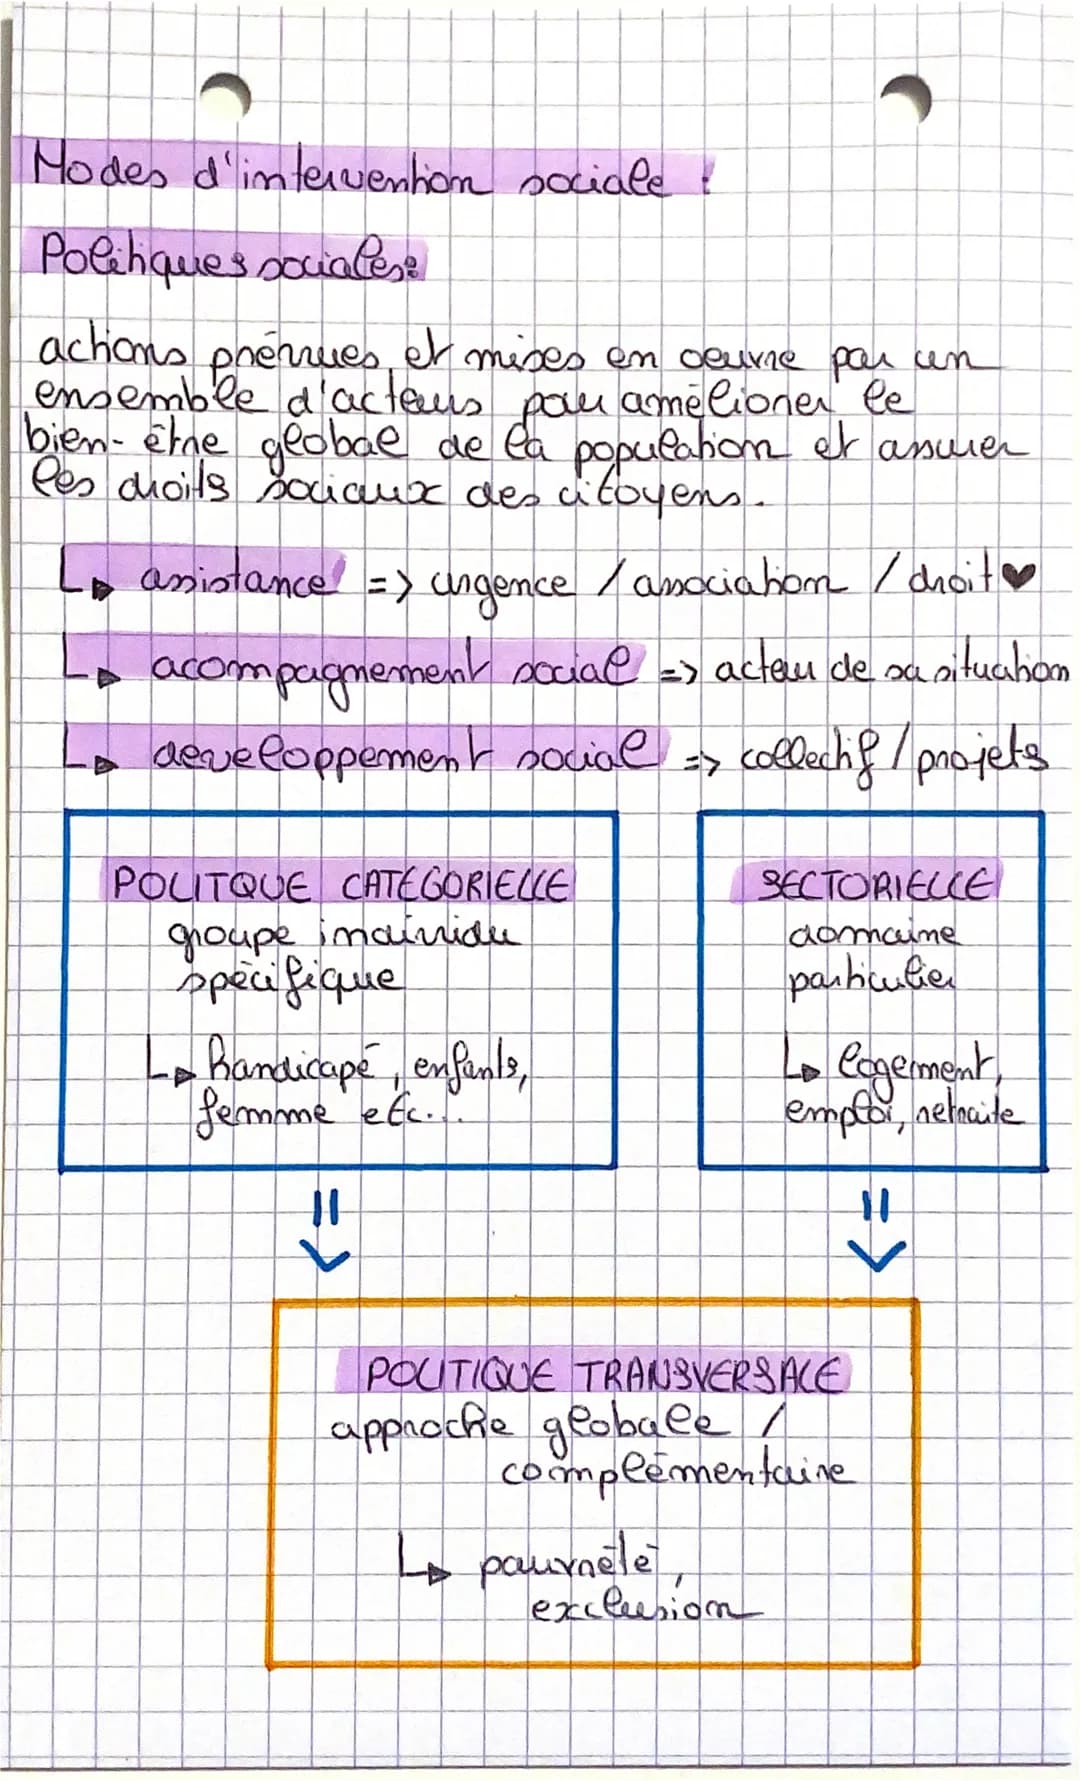 Modes d'intervention sociale :
Politiques sociales:
actions prévues et mises en oeuvre par un
ensemble d'acteurs pour améliorer le
bien-être global de la population et assurer
les droits sociaux des citoyens.
↳ assistance => urgence / association / droit ♥
↳ acompagnement social => acteur de sa situation
↳ developpement social => collectif / projets
POLITQUE CATEGORIELLE
groupe individu
spécifique
↳ handicapé, enfants,
femme etc...
SECTORIELLE
domaine
particulier
↳ logement,
emploi, retraite
POLITIQUE TRANSVERSALE
approche globale /
complémentaire
↳ pauvreté,
exclusion